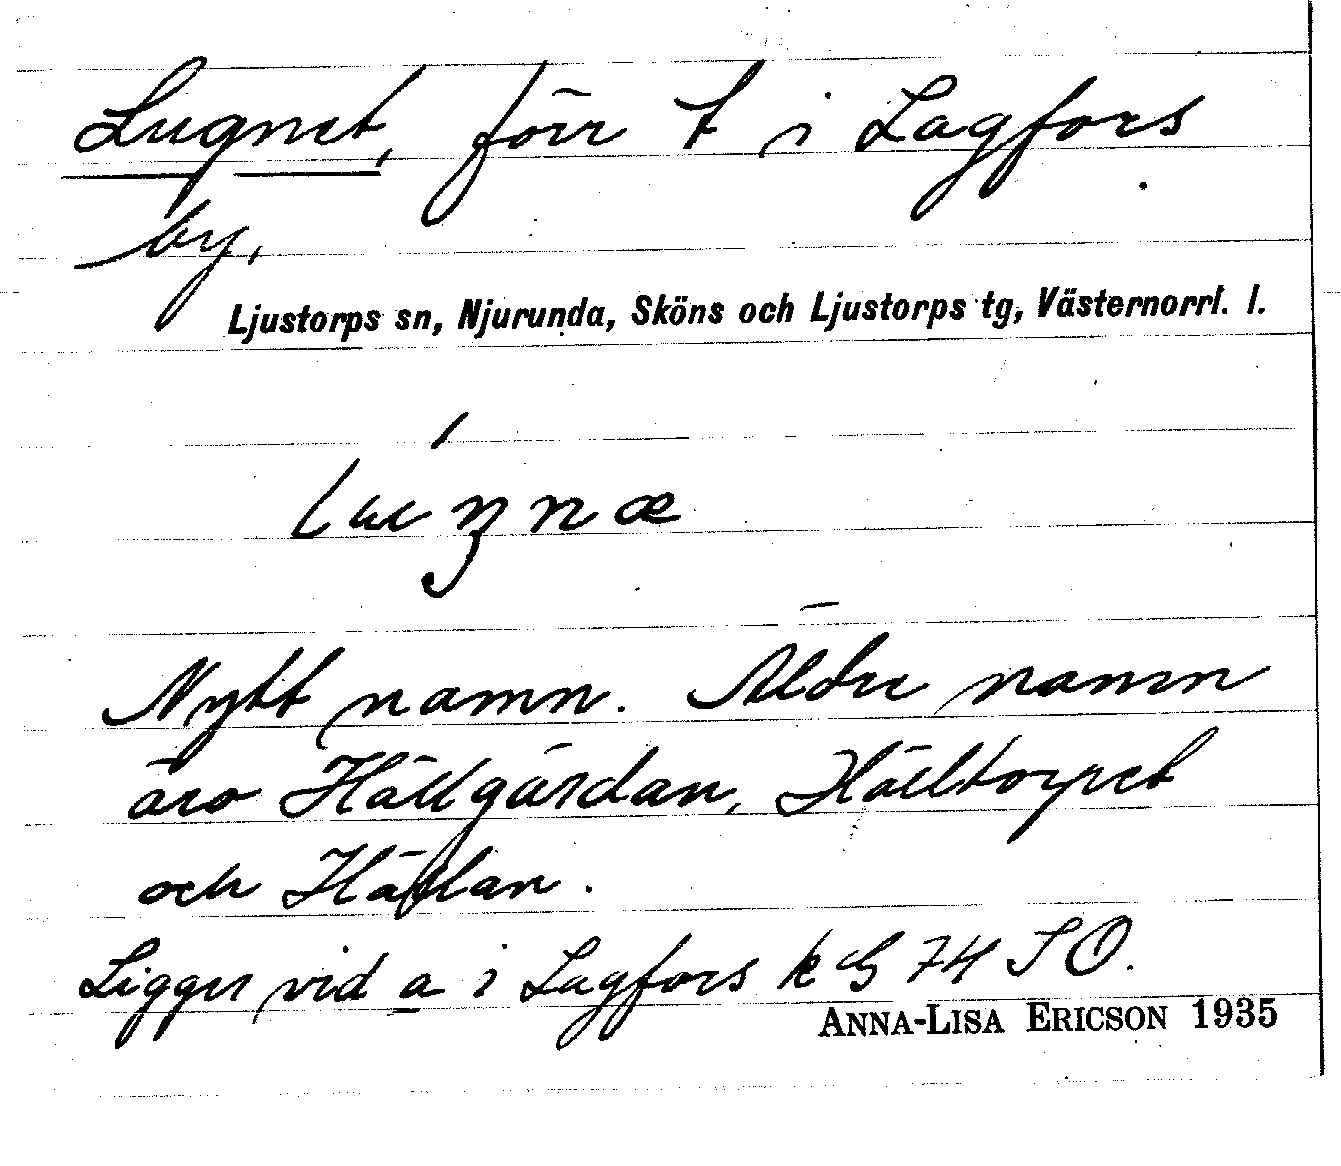 Lugnet, förr t i Lagfors
by,
Ljustorps sn, Njurunda, Sköns och Ljustorps tg, Västernorrl. l.
Nytt namn. Äldre namn
äro Hällgärdan, Hälltorpet
och Hällan.
Ligger vid a i Lagfors k G 74 SO.
ANNA-LISA ERICSON 1935